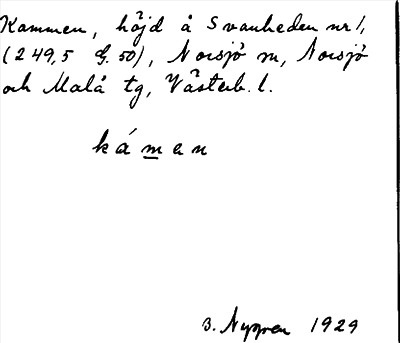 Kammen, höjd å Svanheden nr 1,
(249,5 G. 50), Norsjö m, Norsjö
och Malå tg, Västerb. l.
kámen
B. Nygren 1929